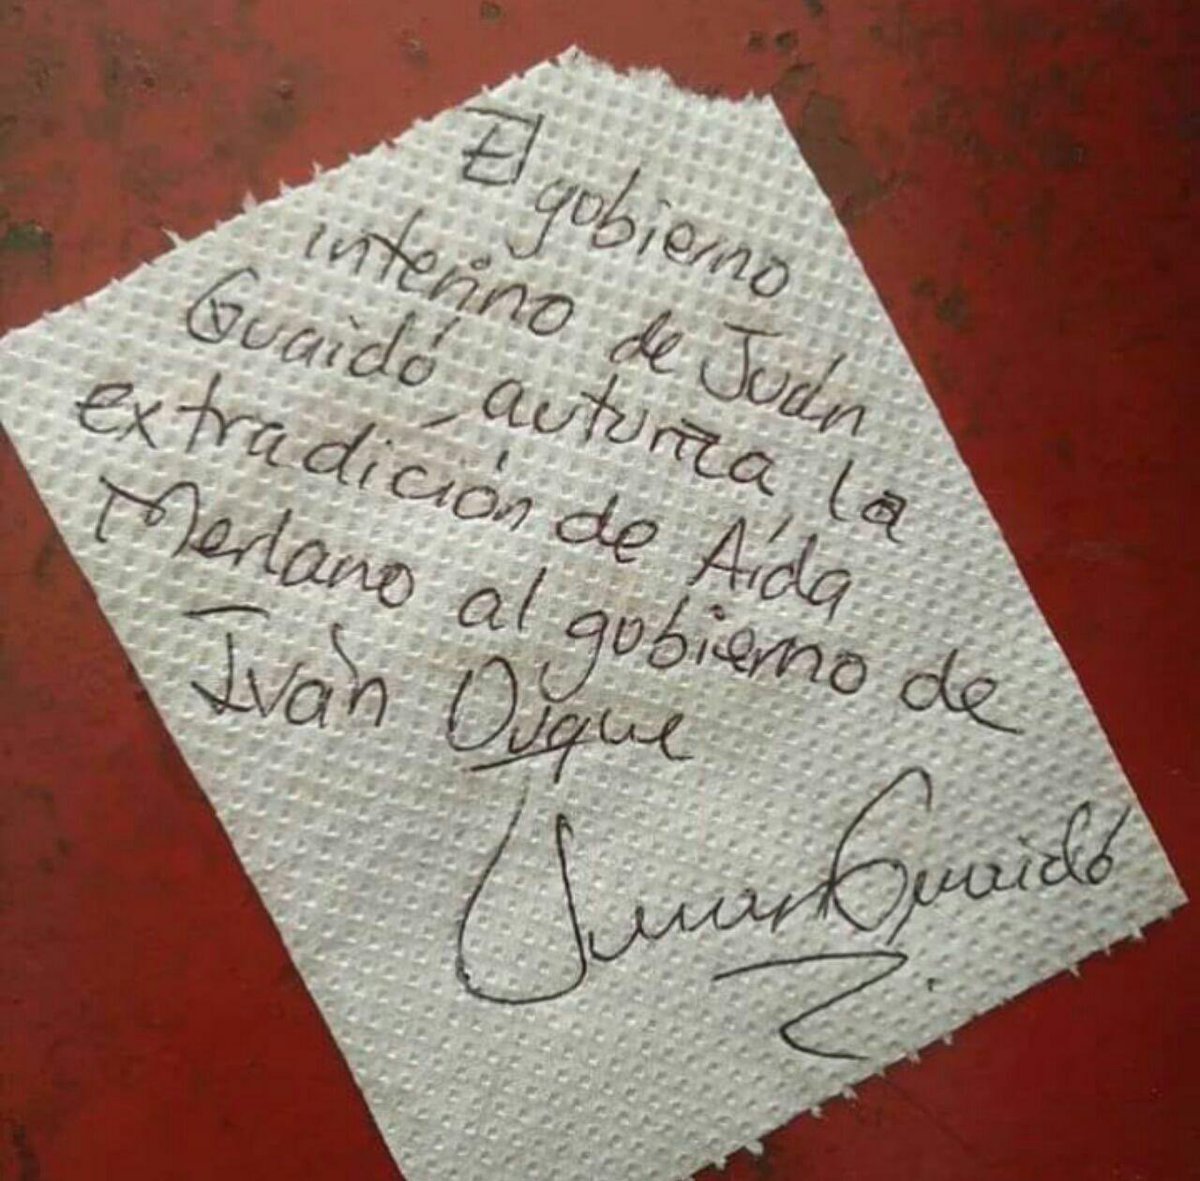 El gobierno
interino de Juán
Guaidó autoriza la
extradición de Aída
Merlano al gobierno de
Iván Duque
Juan Guaidó